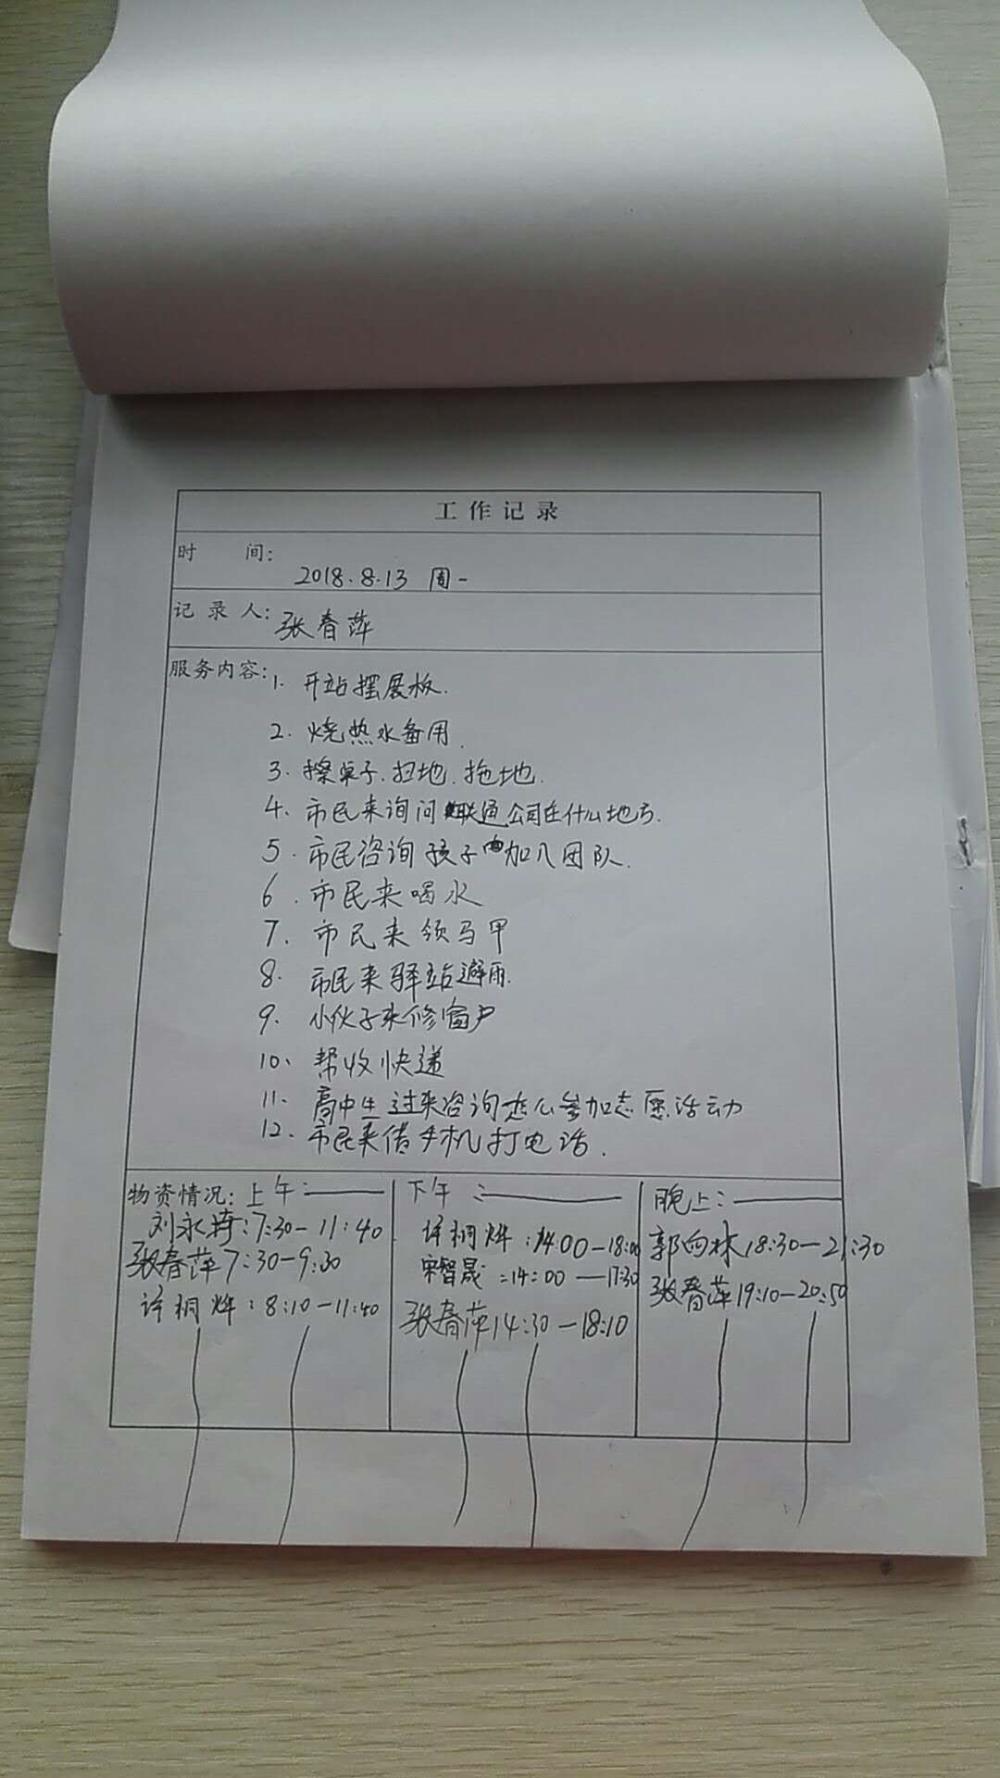 工作记录
时 间:
2018.8.13 周一
记录人: 张春萍
服务内容: 1. 开站摆展板.
2. 烧热水备用.
3. 擦桌子.扫地.拖地.
4. 市民来询问联通公司在什么地方.
5. 市民咨询孩子加入团队.
6. 市民来喝水
7. 市民来领马甲
8. 市民来驿站避雨.
9. 小伙子来修窗户
10、帮收快递
11、高中生过来咨询怎么参加志愿活动
12、市民来借手机打电话.
物资情况: 上午:
刘永:7:30-11:40
张春萍7:30-9:30
桐烨:8:10-11:40
下午:
桐烨:14:00-18:00
宋智晟:14:00-17:30
张春萍14:30-18:10
晚上:
郭向林18:30-21:30
张春萍19:10-20:50